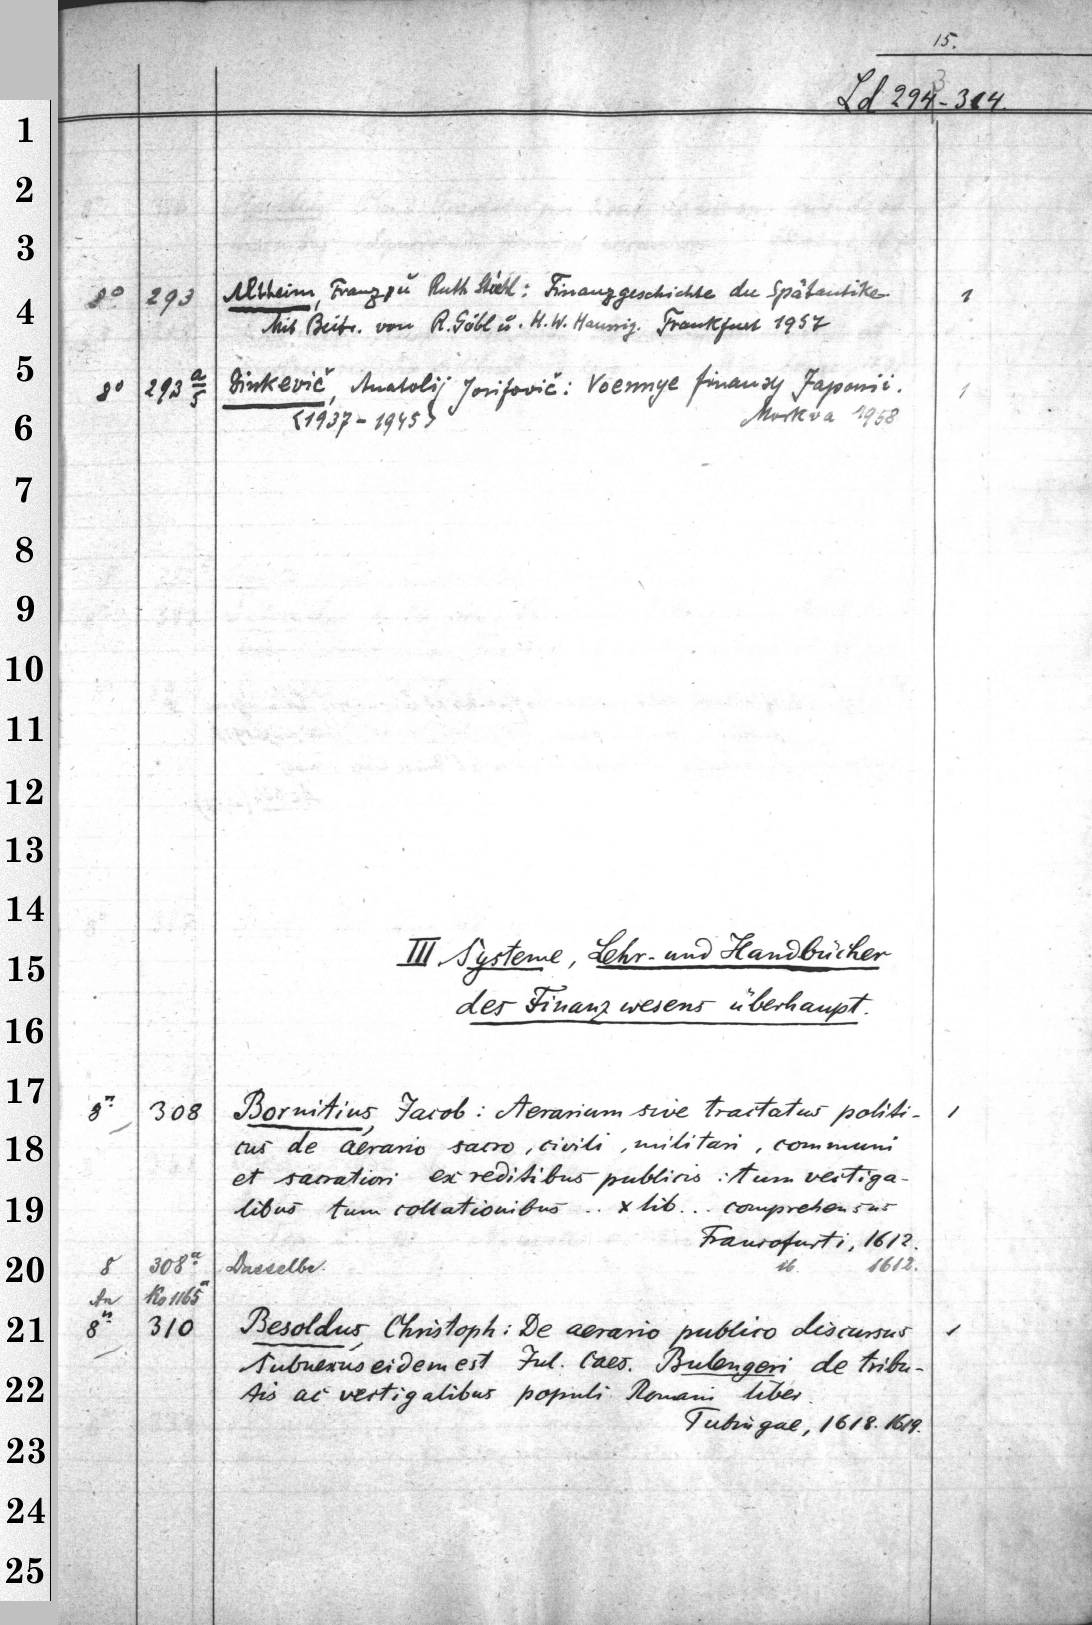 15.
Ld 294-314.
3
8° 293 Altheim, Franz, u. Ruth Stiehl: Finanzgeschichte der Spätantike 1
Mit Beitr. von R. Göbl u. H. W. Haussig. Frankfurt 1957
8° 293 a/5 Sinkevič, Anatolij Josifovič: Voennye finansy Japonii. 1
<1937-1945> Moskva 1958
III Systeme, Lehr- und Handbücher
des Finanzwesens überhaupt.
8n 308 Bornitius, Jacob: Aerarium sive tractatus politi- 1
cus de aerario sacro, civili, militari, communi
et sacratiori ex reditibus publicis: tum vectiga-
libus tum collationibus .. x lib... comprehensus
Francofurti, 1612.
8 308a Dasselbe. ib. 1612.
An Ko 1165n
8n 310 Besoldus, Christoph: De aerario publico discursus 1
Subnexus eidem est Jul. Caes. Bulengeri de tribu-
tis ac vectigalibus populi Romani liber.
Tubingae, 1618. 1619.
1
2
3
4
5
6
7
8
9
10
11
12
13
14
15
16
17
18
19
20
21
22
23
24
25